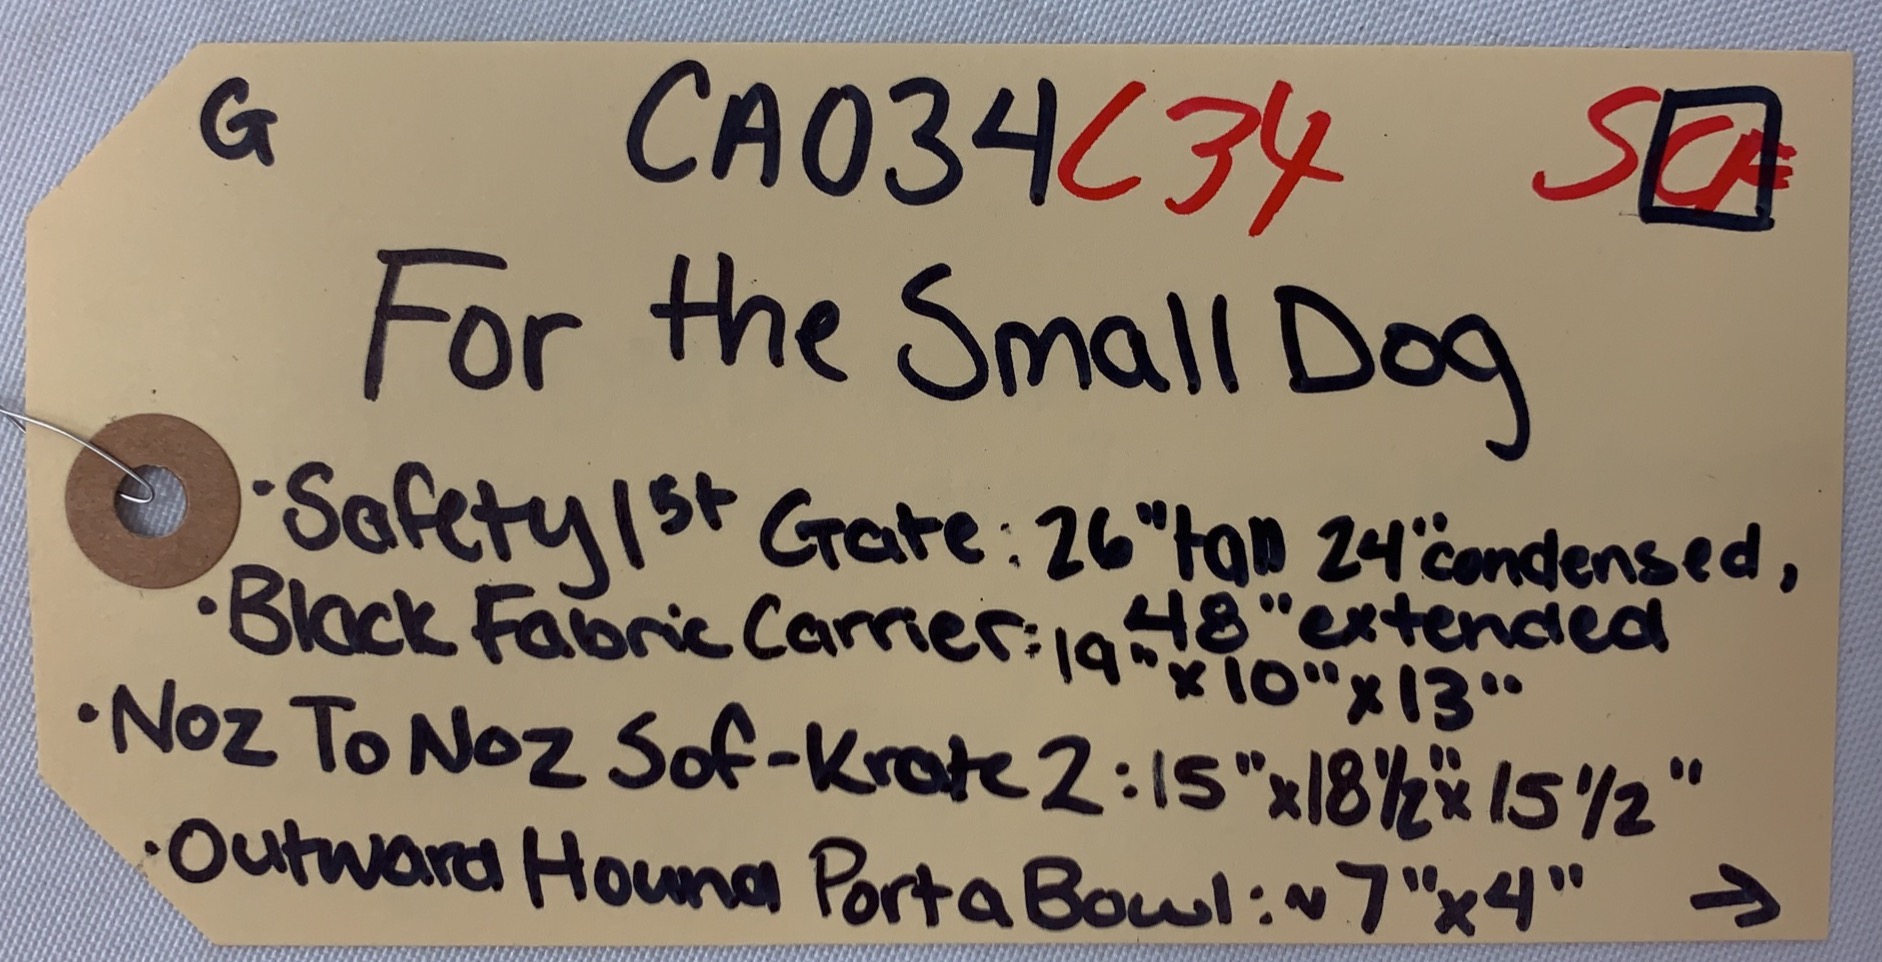 G CA034 C34 SCF
For the Small Dog
·Safety 1st Gate: 26" tall 24" condensed,
48" extended
·Black Fabric Carrier: 19" x 10" x 13"
·Noz To Noz Sof-Krate 2: 15" x 18 1/2" x 15 1/2"
·Outward Hound Port a Bowl: ~ 7" x 4" →